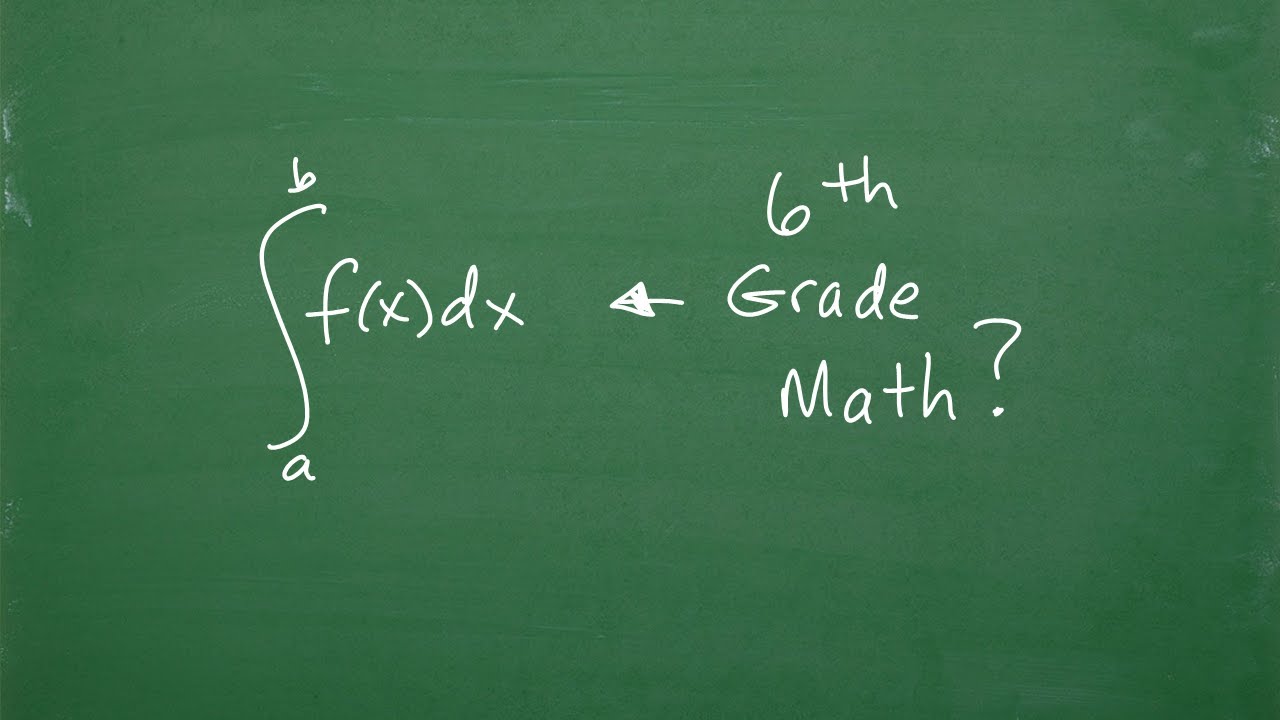 b
∫ f(x)dx
a
6th
Grade
Math?